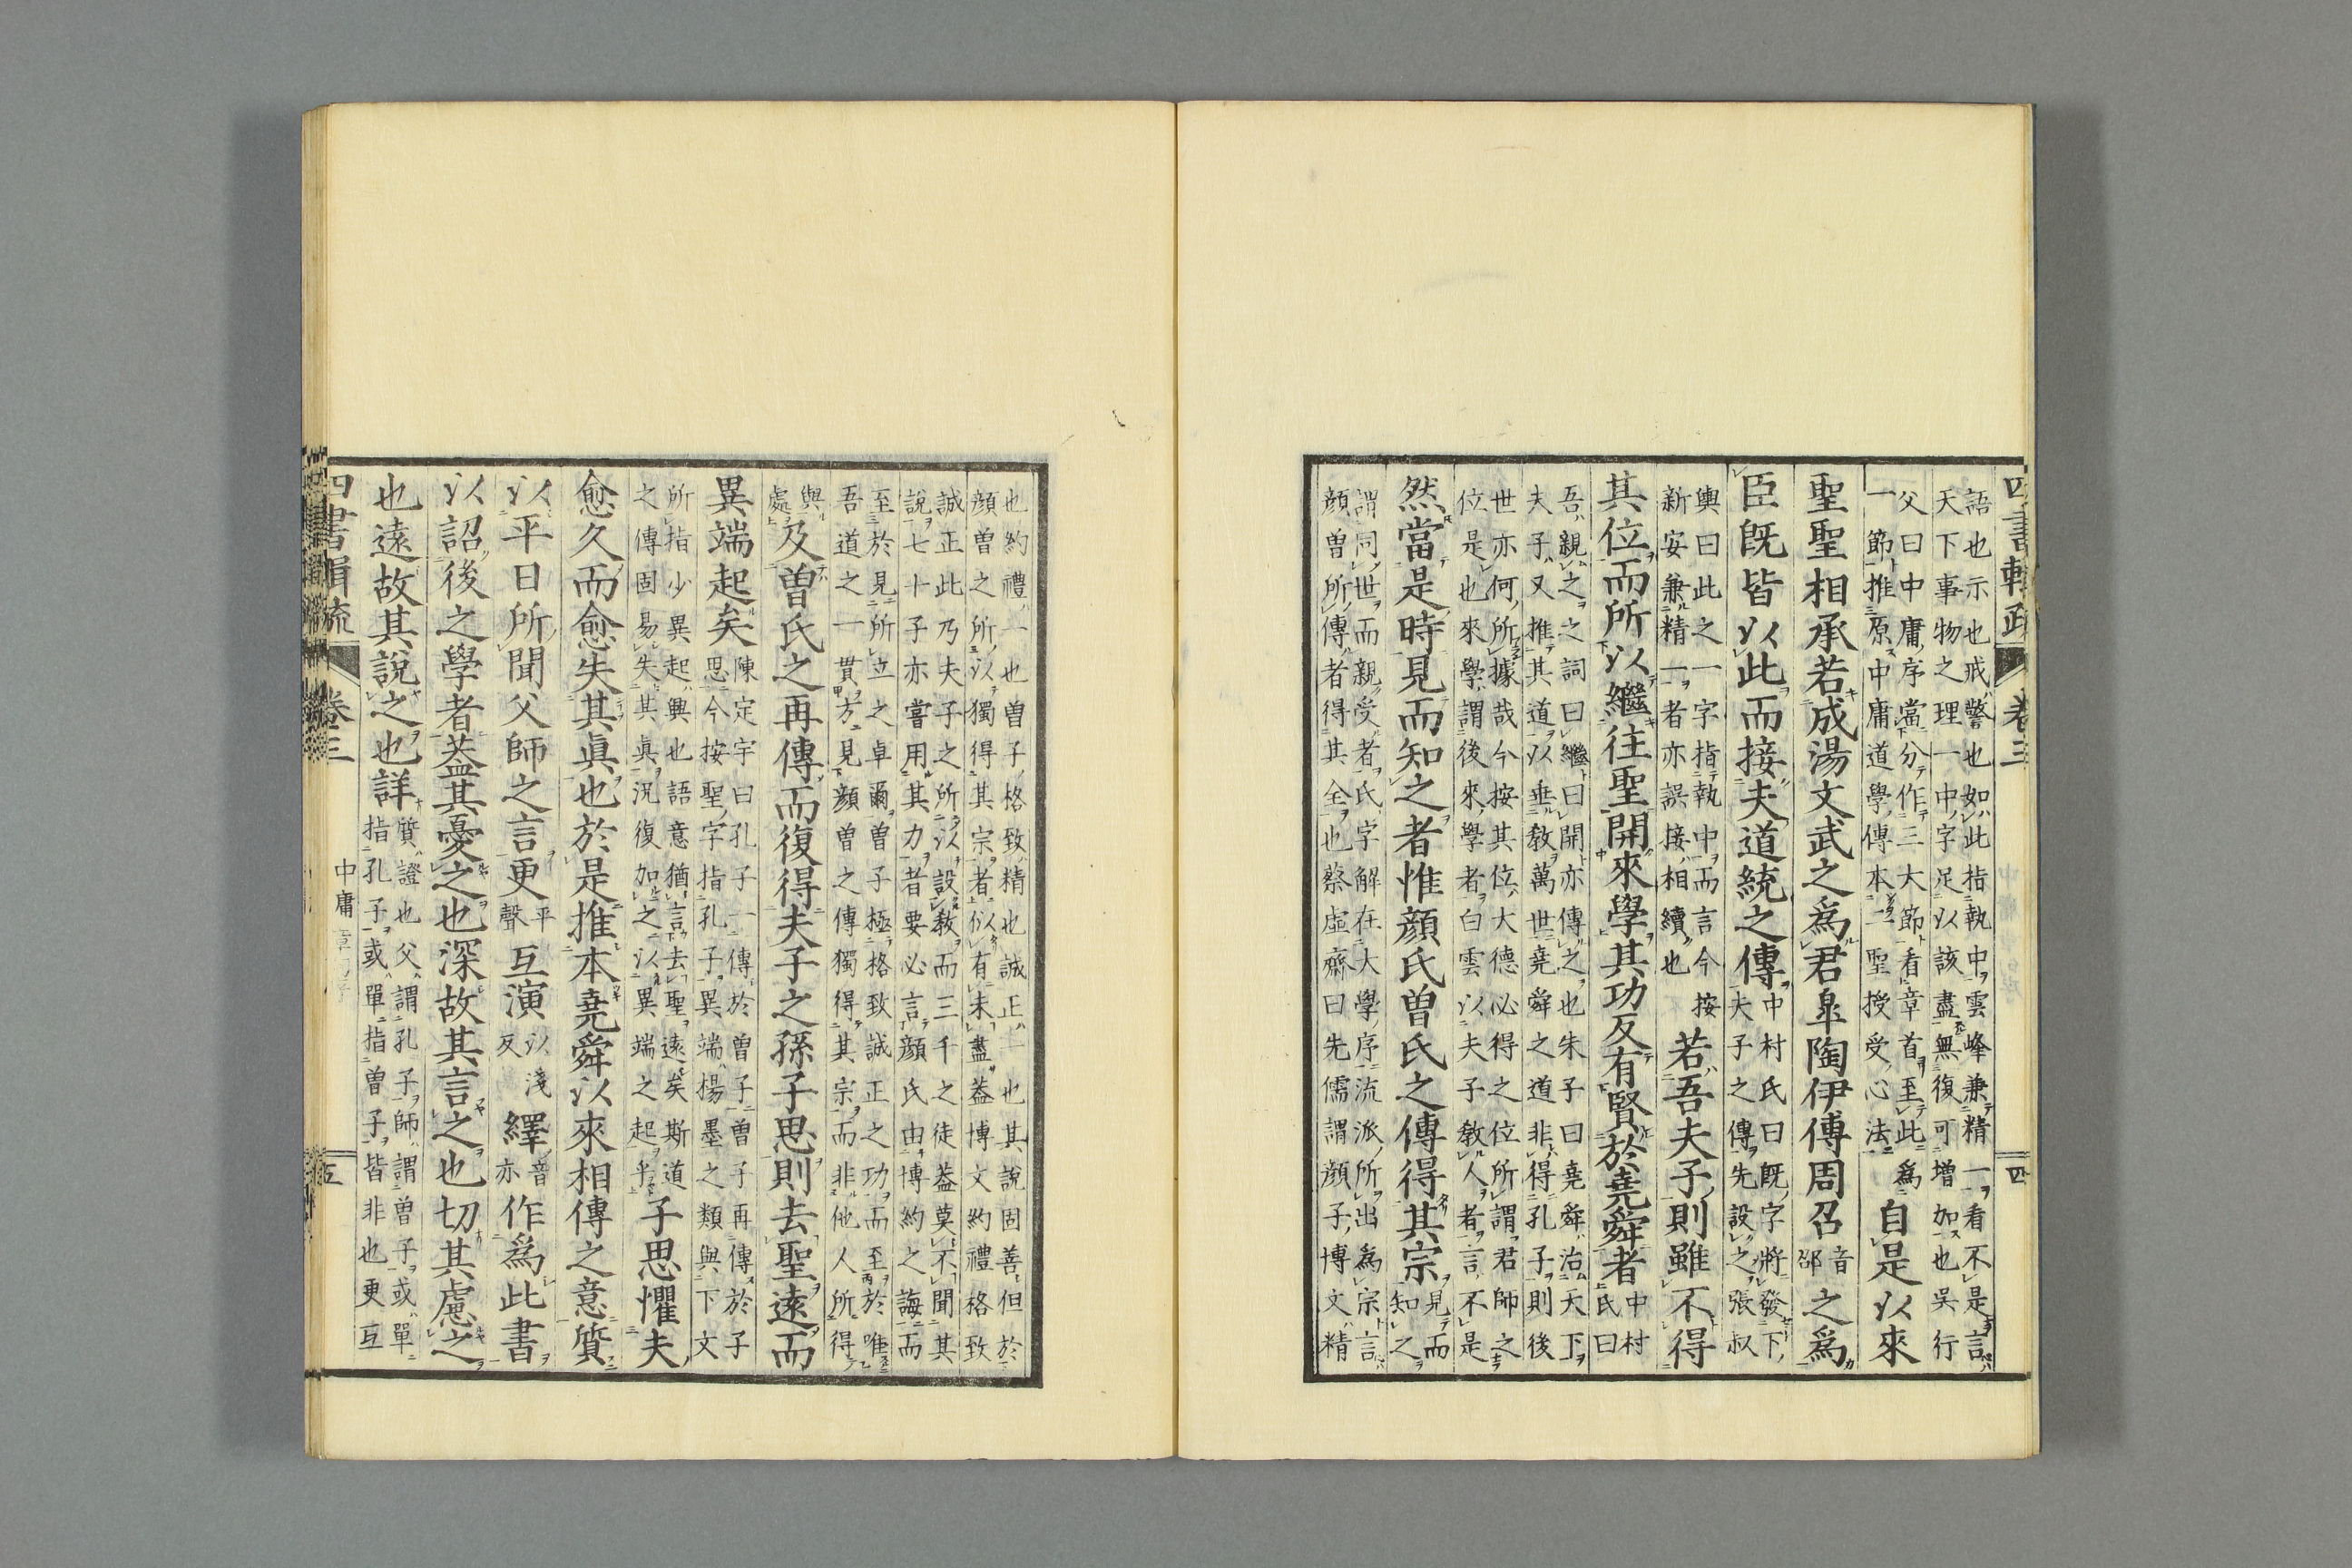 四書輯疏 卷三 四
語也示也戒警也如此指執中雲峰兼精一看不是言
天下事物之理一中字足以該盡無復可增加也吳行
父曰中庸序當分作三大節看章首至此爲
一節推原中庸道學傳本二聖授受心法
自是以來
聖聖相承若成湯文武之爲君皐陶伊傅周召
音
邵
之爲
臣既皆以此而接夫道統之傳
中村氏曰既字將發下
夫子之傳先設之張叔
輿曰此之一字指執中而言今按
新安兼精一者亦誤接相續也
若吾夫子則雖不得
其位而所以繼往聖開來學其功反有賢於堯舜者
中村
氏曰
吾親之之詞曰繼曰開亦傳之也朱子曰堯舜治天下
夫子又推其道以垂教萬世堯舜之道非得孔子則後
世亦何所據哉今按其位大德必得之位所謂君師之
位是也來學謂後來學者白雲以夫子教人者言不是
然當是時見而知之者惟顏氏曾氏之傳得其宗
見而
知之
謂同世而親受者氏字解在大學序流派所出爲宗言
顏曾所傳者得其全也蔡虛齋曰先儒謂顏子博文精
也約禮一也曾子格致精也誠正一也其說固善但於
顏曾之所以獨得其宗者似有未盡蓋博文約禮格致
誠正此乃夫子之所以設教而三千之徒蓋莫不聞其
說七十子亦嘗用其力者要必言顏氏由博約之誨而
至於見所立之卓爾曾子極格致誠正之功而至於唯
吾道之一貫方見顏曾之傳獨得其宗而非他人所得
與
處
及曾氏之再傳而復得夫子之孫子思則去聖遠而
異端起矣
陳定宇曰孔子一傳於曾子曾子再傳於子
思今按聖字指孔子異端楊墨之類與下文
所指少異起興也語意猶言去聖遠矣斯道
之傳固易失其眞況復加之以異端之起乎
子思懼夫
愈久而愈失其眞也於是推本堯舜以來相傳之意質
以平日所聞父師之言更
平
聲
互演
以淺
反
繹
音
亦
作爲此書
以詔後之學者蓋其憂之也深故其言之也切其慮之
也遠故其說之也詳
質證也父謂孔子師謂曾子或單
指孔子或單指曾子皆非也更互
四書輯疏 卷三 中庸 五